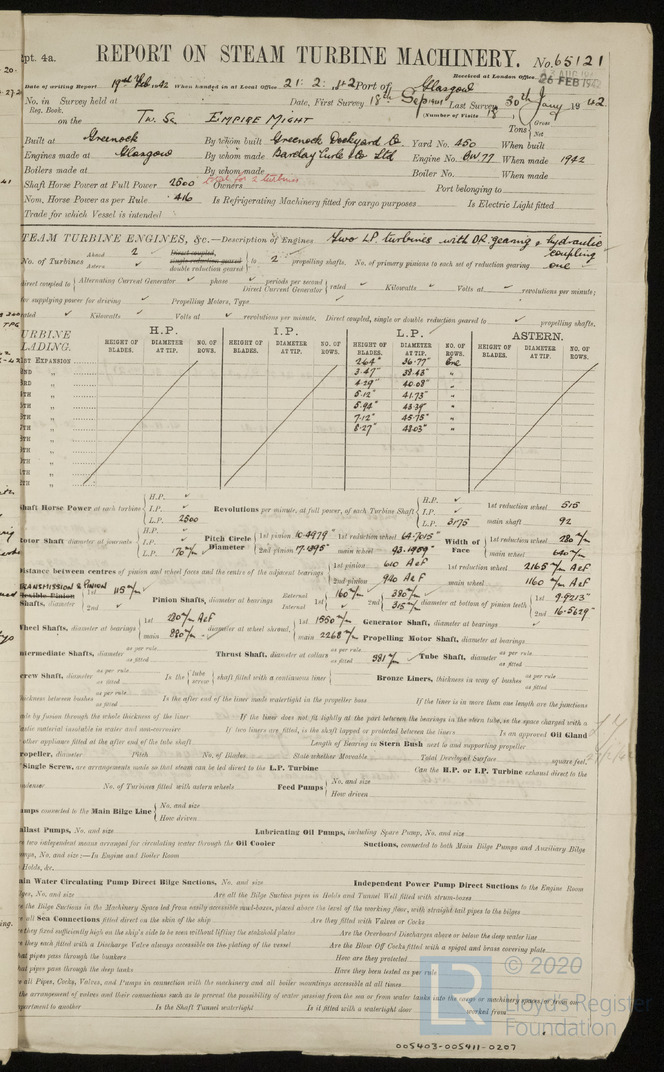 pt. 4a. REPORT ON STEAM TURBINE MACHINERY. No. 65121
Received at London Office 26 FEB 1942
Date of writing Report 19th Feb 1942 When handed in at Local Office 21. 2. 42 Port of Glasgow
No. in Survey held at Date, First Survey 18th Sep 1941 Last Survey 30th Jany 1942
Reg. Book. (Number of Visits 18)
on the Tw. Sc. EMPIRE MIGHT Tons Gross Net
Built at Greenock By whom built Greenock Dockyard Co Yard No. 450 When built
Engines made at Glasgow By whom made Barclay Curle & Co Ltd Engine No. BW 77 When made 1942
Boilers made at By whom made Boiler No. When made
Shaft Horse Power at Full Power 2500 total for 2 turbines Owners Port belonging to
Nom. Horse Power as per Rule 416 Is Refrigerating Machinery fitted for cargo purposes Is Electric Light fitted
Trade for which Vessel is intended
TEAM TURBINE ENGINES, &c.—Description of Engines Two L.P. turbines with D.R. gearing & hydraulic coupling
No. of Turbines Ahead 2 Astern Direct coupled, single reduction geared double reduction geared to 2 propelling shafts. No. of primary pinions to each set of reduction gearing one
direct coupled to Alternating Current Generator phase periods per second Direct Current Generator rated Kilowatts Volts at revolutions per minute;
for supplying power for driving Propelling Motors, Type
rated Kilowatts Volts at revolutions per minute. Direct coupled, single or double reduction geared to propelling shafts.
TURBINE BLADING. H.P. I.P. L.P. ASTERN.
HEIGHT OF BLADES. DIAMETER AT TIP. NO. OF ROWS. HEIGHT OF BLADES. DIAMETER AT TIP. NO. OF ROWS. HEIGHT OF BLADES. DIAMETER AT TIP. NO. OF ROWS. HEIGHT OF BLADES. DIAMETER AT TIP. NO. OF ROWS.
1ST EXPANSION 2.64" 36.77" One
2ND „ 3.47" 38.43" „
3RD „ 4.29" 40.08" „
5.12" 41.73" „
5.94" 43.39" „
7.12" 45.75" „
8.27" 48.03" „
Shaft Horse Power at each turbine H.P. I.P. L.P. 2500 Revolutions per minute, at full power, of each Turbine Shaft H.P. I.P. L.P. 3175 1st reduction wheel 515 main shaft 92
Rotor Shaft diameter at journals H.P. I.P. L.P. 170 m/m Pitch Circle Diameter 1st pinion 10.4979" 2nd pinion 17.1295" 1st reduction wheel 64.7015" main wheel 93.1959" Width of Face 1st reduction wheel 280 m/m main wheel 640 m/m
Distance between centres of pinion and wheel faces and the centre of the adjacent bearings 1st pinion 610 A&F 2nd pinion 940 A&F 1st reduction wheel 2165 m/m A&F main wheel 1160 m/m A&F
TRANSMISSION & PINION
Flexible Pinion Shafts, diameter 1st 115 m/m 2nd Pinion Shafts, diameter at bearings External Internal 1st 160 m/m 2nd 380 m/m 315 m/m diameter at bottom of pinion teeth 1st 9.9213" 2nd 16.5629"
Wheel Shafts, diameter at bearings 1st 220 m/m A&F main 880 m/m diameter at wheel shroud, 1st 1550 m/m main 2268 m/m Generator Shaft, diameter at bearings Propelling Motor Shaft, diameter at bearings
Intermediate Shafts, diameter as per rule as fitted Thrust Shaft, diameter at collars as per rule as fitted 381 m/m Tube Shaft, diameter as per rule as fitted
Screw Shaft, diameter as per rule as fitted Is the tube screw shaft fitted with a continuous liner Bronze Liners, thickness in way of bushes as per rule as fitted
Thickness between bushes as per rule as fitted Is the after end of the liner made watertight in the propeller boss If the liner is in more than one length are the junctions
made by fusion through the whole thickness of the liner If the liner does not fit tightly at the part between the bearings in the stern tube, is the space charged with a
plastic material insoluble in water and non-corrosive If two liners are fitted, is the shaft lapped or protected between the liners Is an approved Oil Gland
or other appliance fitted at the after end of the tube shaft Length of Bearing in Stern Bush next to and supporting propeller
Propeller, diameter Pitch No. of Blades State whether Moveable Total Developed Surface square feet.
Single Screw, are arrangements made so that steam can be led direct to the L.P. Turbine Can the H.P. or I.P. Turbine exhaust direct to the
Condenser No. of Turbines fitted with astern wheels Feed Pumps No. and size How driven
Pumps connected to the Main Bilge Line No. and size How driven
Ballast Pumps, No. and size Lubricating Oil Pumps, including Spare Pump, No. and size
two independent means arranged for circulating water through the Oil Cooler Suctions, connected to both Main Bilge Pumps and Auxiliary Bilge
Pumps, No. and size:—In Engine and Boiler Room
Holds, &c.
Main Water Circulating Pump Direct Bilge Suctions, No. and size Independent Power Pump Direct Suctions to the Engine Room
Bilges, No. and size Are all the Bilge Suction pipes in Holds and Tunnel Well fitted with strum-boxes
the Bilge Suctions in the Machinery Spaces led from easily accessible mud-boxes, placed above the level of the working floor, with straight tail pipes to the bilges
all Sea Connections fitted direct on the skin of the ship Are they fitted with Valves or Cocks
they fixed sufficiently high on the ship's side to be seen without lifting the stokehold plates Are the Overboard Discharges above or below the deep water line
they each fitted with a Discharge Valve always accessible on the plating of the vessel Are the Blow Off Cocks fitted with a spigot and brass covering plate
What pipes pass through the bunkers How are they protected
What pipes pass through the deep tanks Have they been tested as per rule
all Pipes, Cocks, Valves, and Pumps in connection with the machinery and all boiler mountings accessible at all times
the arrangement of valves and their connections such as to prevent the possibility of water passing from the sea or from water tanks into the cargo or machinery spaces, or from one
compartment to another Is the Shaft Tunnel watertight Is it fitted with a watertight door worked from
© 2020
Lloyd's Register
Foundation
005403-005411-0207